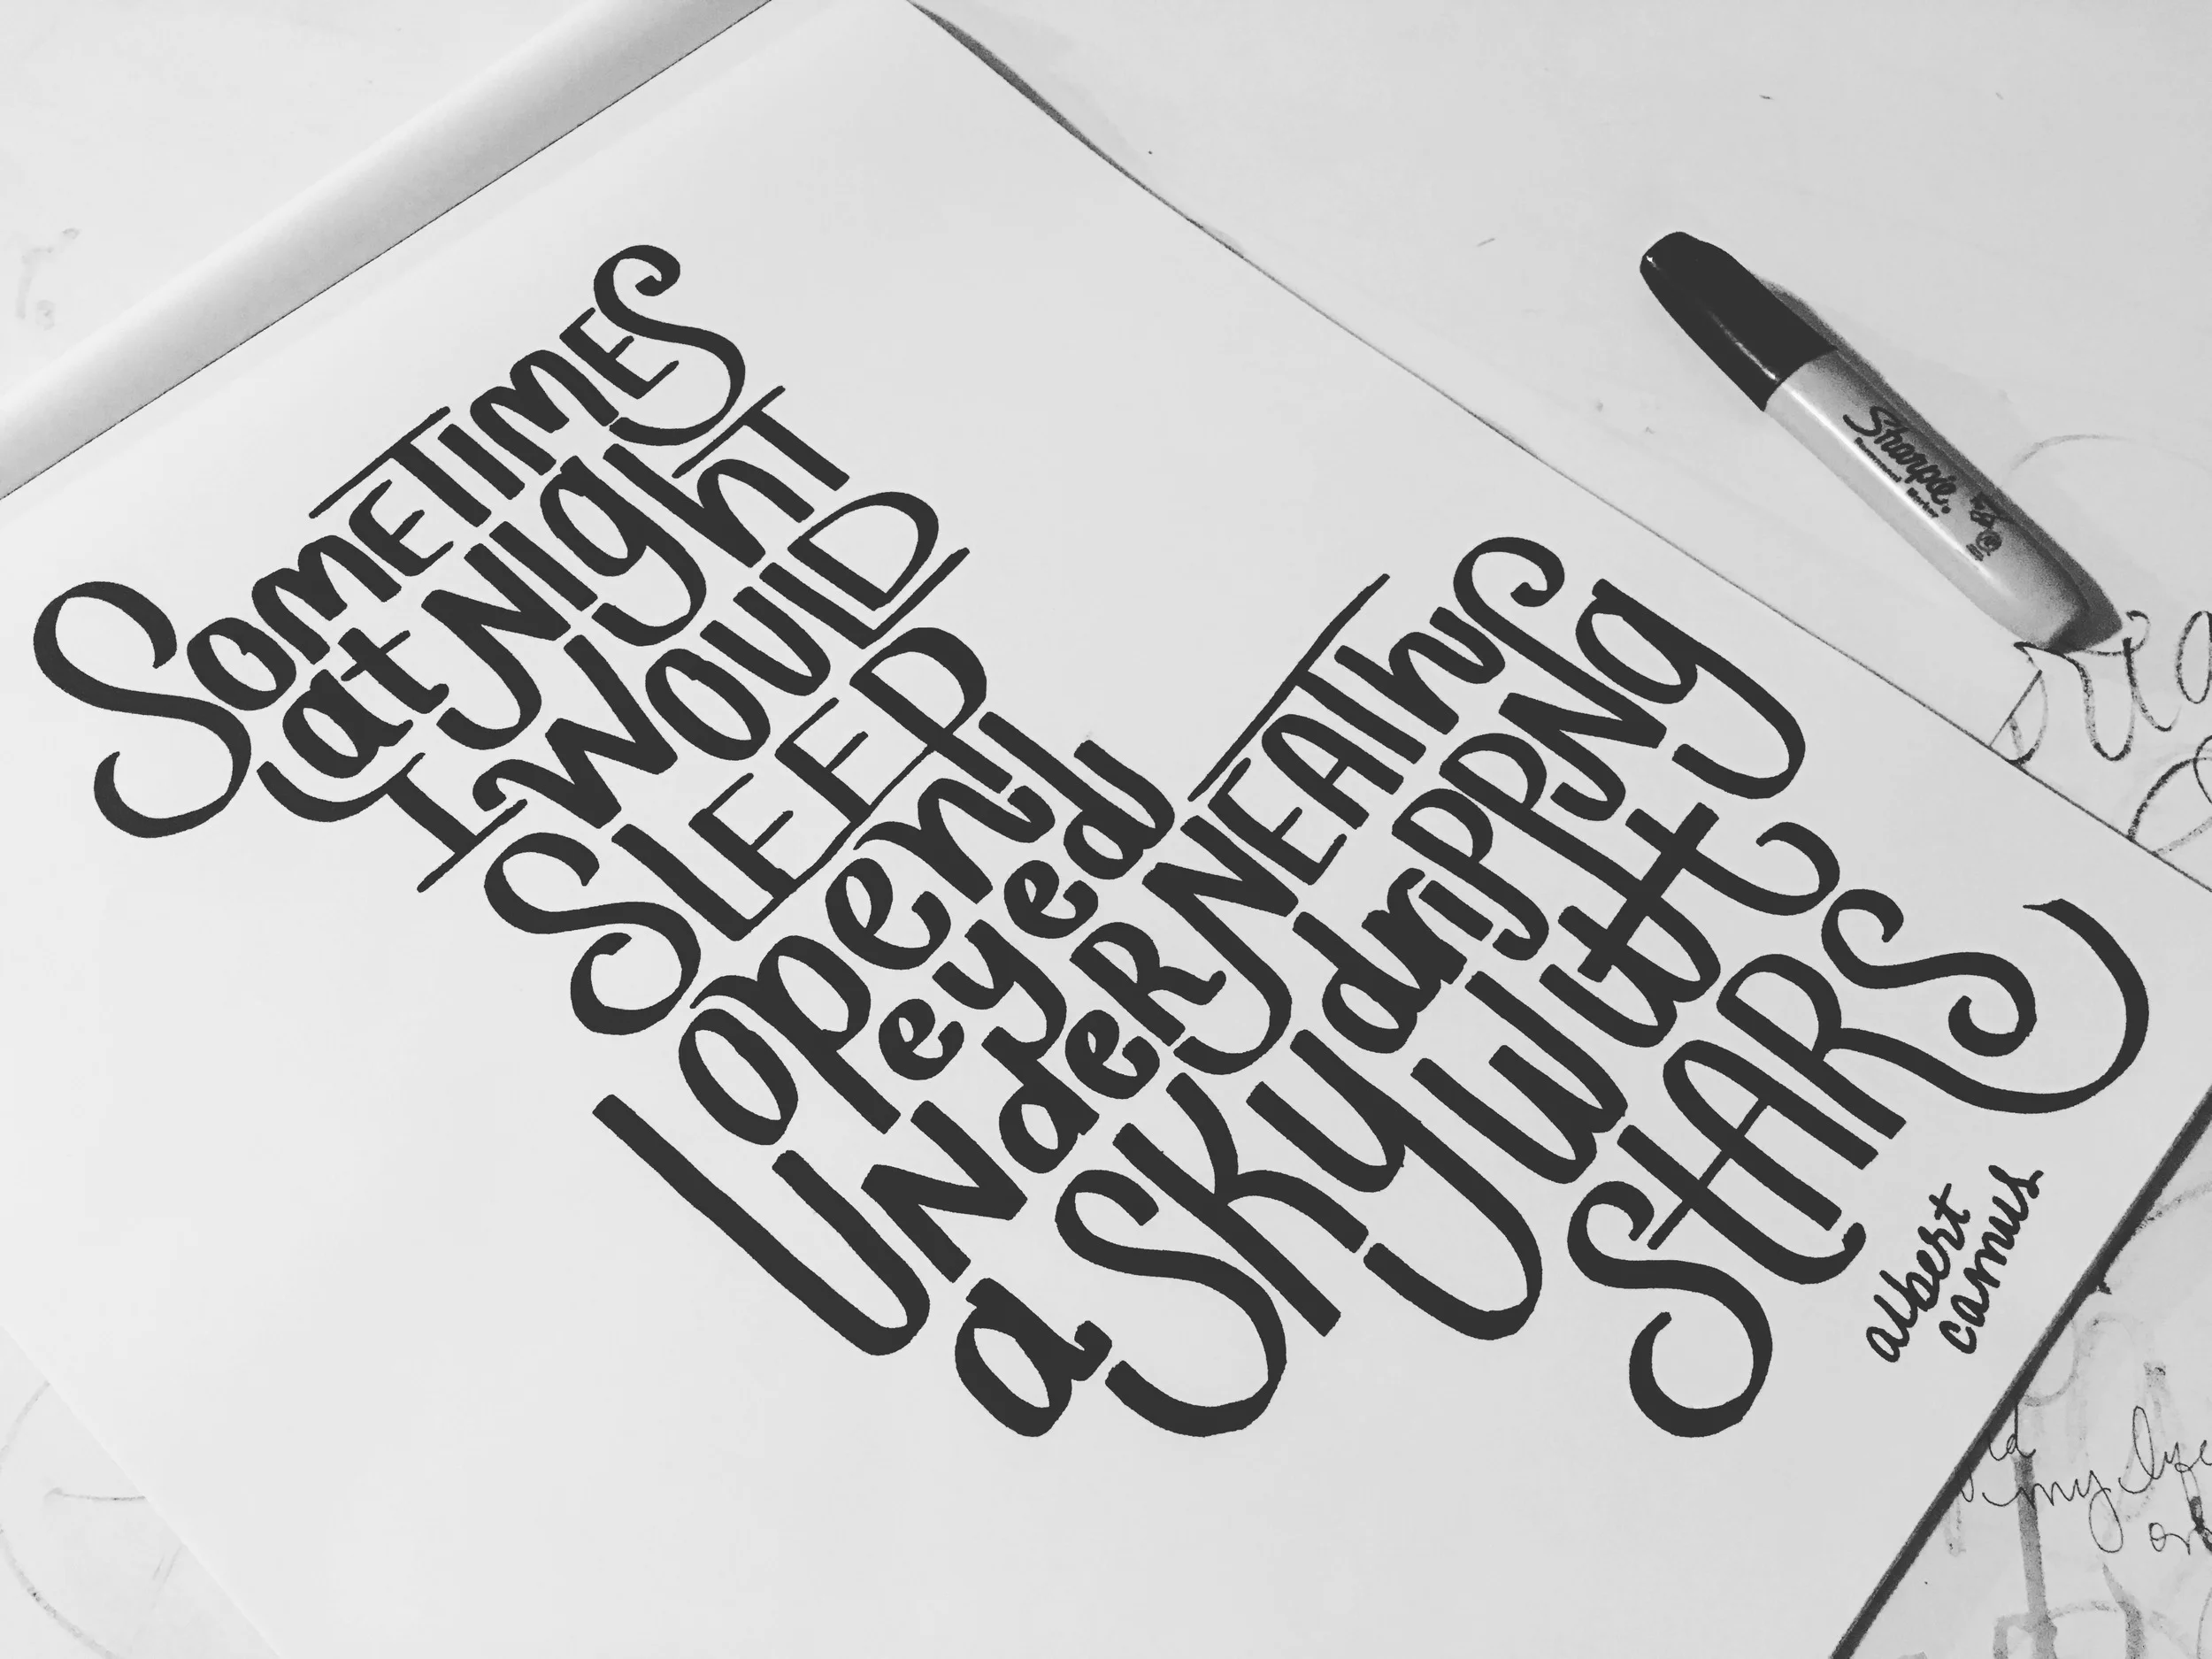 SomeTIMES
at Night
I WOULD
SLEEP
open
eyed
UNdeRNEATH
a SKY dripping
with
STARS
albert
camus
Sharpie
my life